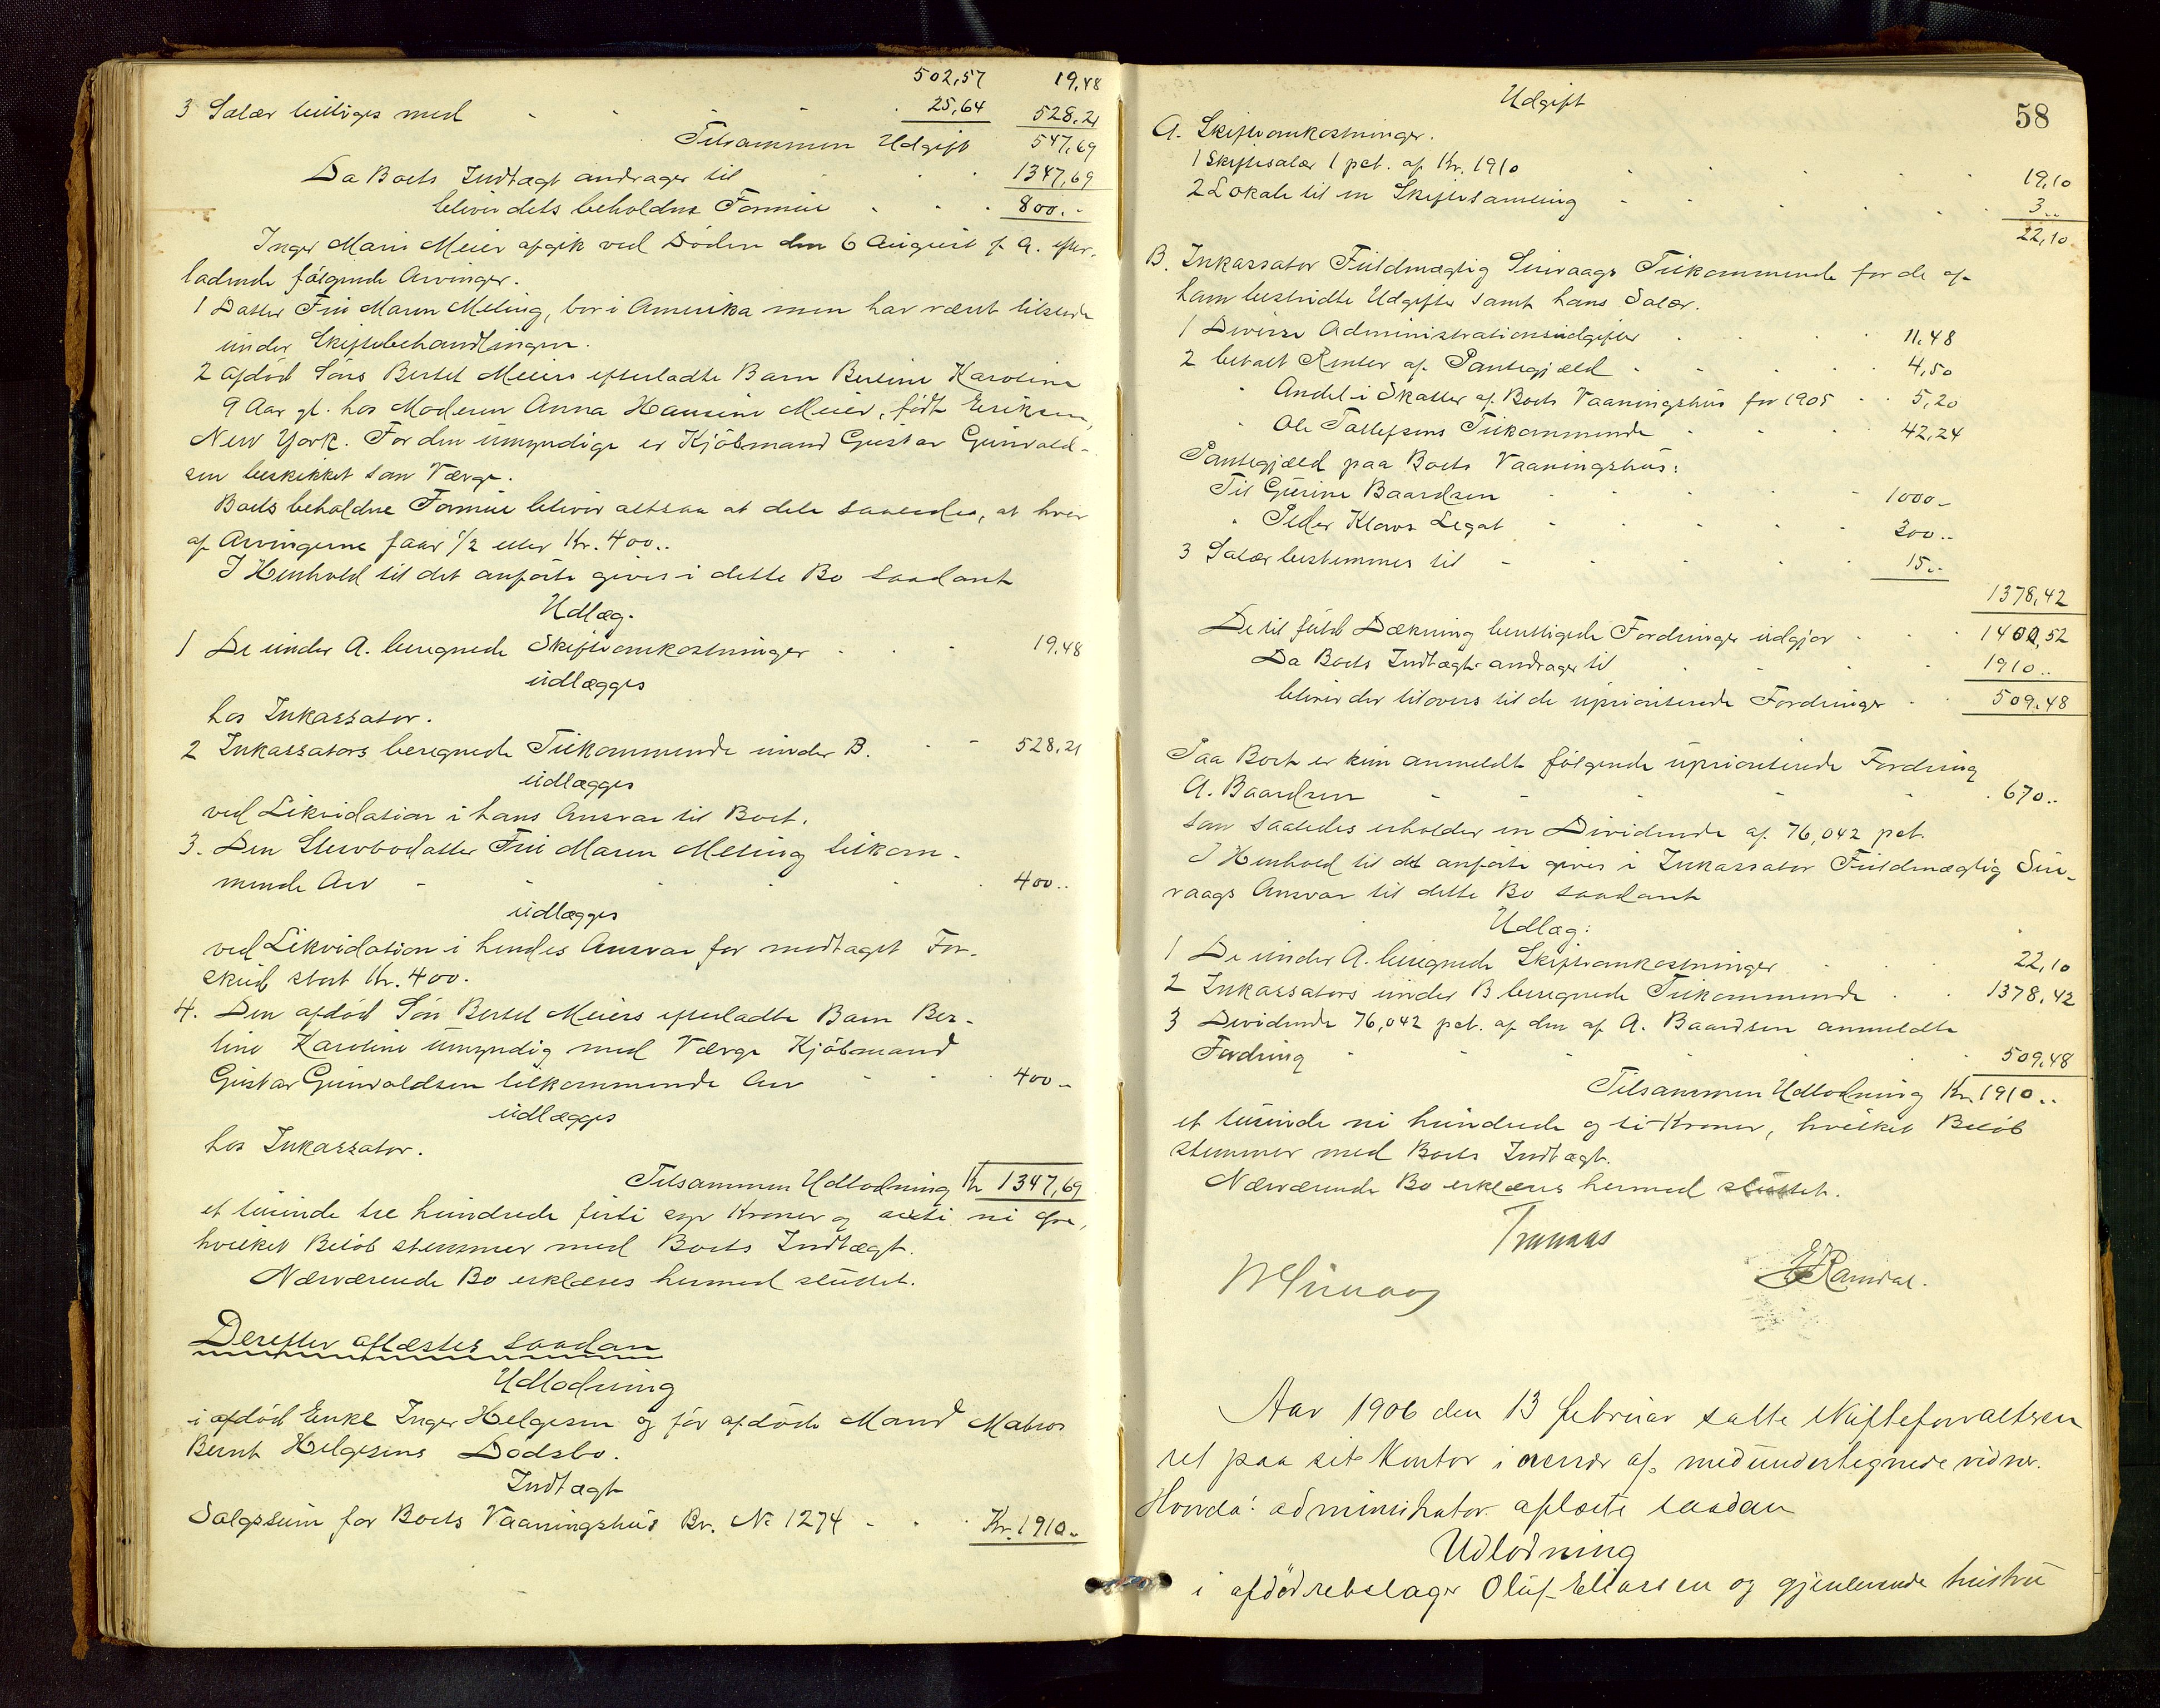 502,57 19,48
3 Salær billiges med 25,64 528,21
Tilsammen Udgift 547,69
Da Boets Indtægt andrager til 1347,69
bliver dets beholdne Formue 800.-
Inger Marie Meier afgik ved Döden den 6 August f. A. efter-
ladende fölgende Arvinger.
1 Datter Fru Maren Meling, bor i Amerika men har været tilstede
under Skiftebehandlingen.
2 afdöd Söns Bertel Meiers efterladte Barn Berline Karoline
9 Aar gl. hos Moderen Anna Hansine Meier, födt Eriksen,
New York. For den umyndige er Kjöbmand Gustav Gunvald-
sen beskikket som Værge.
Boets beholdne Formue bliver altsaa at dele saaledes, at hver
af Arvingerne faar 1/2 eller Kr. 400..
I Henhold til det anförte gives i dette Bo saadant
Udlæg.
1 De under A. beregnede Skifteomkostninger 19,48
udlægges
hos Inkassator.
2 Inkassators beregnede Tilkommende under B. 528,21
udlægges
ved Likvidation i hans Ansvar til Boet.
3. Den Stervbodatter Fru Maren Meling tilkom-
mende Arv 400..
udlægges
ved Likvidation i hendes Ansvar for modtaget For-
skud stort Kr. 400.
4. Den afdöd Sön Bertel Meiers efterladte Barn Ber-
line Karoline umyndig med Værge Kjöbmand
Gustav Gunvaldsen tilkommende Arv 400-
udlægges
hos Inkassator.
Tilsammen Udlodning Kr 1347,69
et tusinde tre hundrede firti syv Kroner og sexti ni Öre,
hvilket Belöb stemmer med Boets Indtægt.
Nærværende Bo erklæres hermed sluttet.
Derefter aflæstes saadan
Udlodning
i afdöd Enke Inger Helgesen og för afdöde Mand Matros
Bernt Helgesens Dödsbo.
Indtægt
Salgssum for Boets Vaaningshus Br. No 1274 Kr. 1910..
58
Udgift
A. Skifteomkostninger.
1 Skiftesalær 1 pct. af Kr. 1910 19,10
2 Lokale til en Skiftesamling 3..
22,10
B. Inkassator Fuldmægtig Sirevaags Tilkommende for de af
ham bestridte Udgifter samt hans Salær.
1 Diverse Administrationsudgifter 11,48
2 betalt Renter af Pantegjæld 4,50
" Andel i Skatter af Boets Vaaningshus for 1905 5,20
" Ole Tollefsens Tilkommende 42,24
Pantegjæld paa Boets Vaaningshus:
Til Gurine Baardsen 1000-
" Peder Klows Legat 300..
3 Salær bestemmes til 15..
1378,42
De til fuld Dækning berettigede Fordringer udgjör 1400,52
Da Boets Indtægt andrager til 1910..
bliver der tilovers til de uprioriterede Fordringer 509,48
Paa Boet er kun anmeldt fölgende uprioriterede Fordring
A. Baardsen 670..
som saaledes erholder en Dividende af 76,042 pct.
I Henhold til det anförte gives i Inkassator Fuldmægtig Sire-
vaags Ansvar til dette Bo saadant
Udlæg:
1 De under A. beregnede Skifteomkostninger 22,10
2 Inkassators under B beregnede Tilkommende 1378,42
3 Dividende 76,042 pct. af den af A. Baardsen anmeldte
Fordring 509,48
Tilsammen Udlodning Kr. 1910..
et tusinde ni hundrede og ti Kroner, hvilket Belöb
stemmer med Boets Indtægt.
Nærværende Bo erklæres hermed sluttet.
Aar 1906 den 13 februar satte skifteforvalteren
ret paa sit Kontor i nærvær af medundertegnede vidner.
Hvorda: administrator aflæste saadan
Udlodning
i afdöd rebslager Oluf Eliassen og gjenlevende hustru